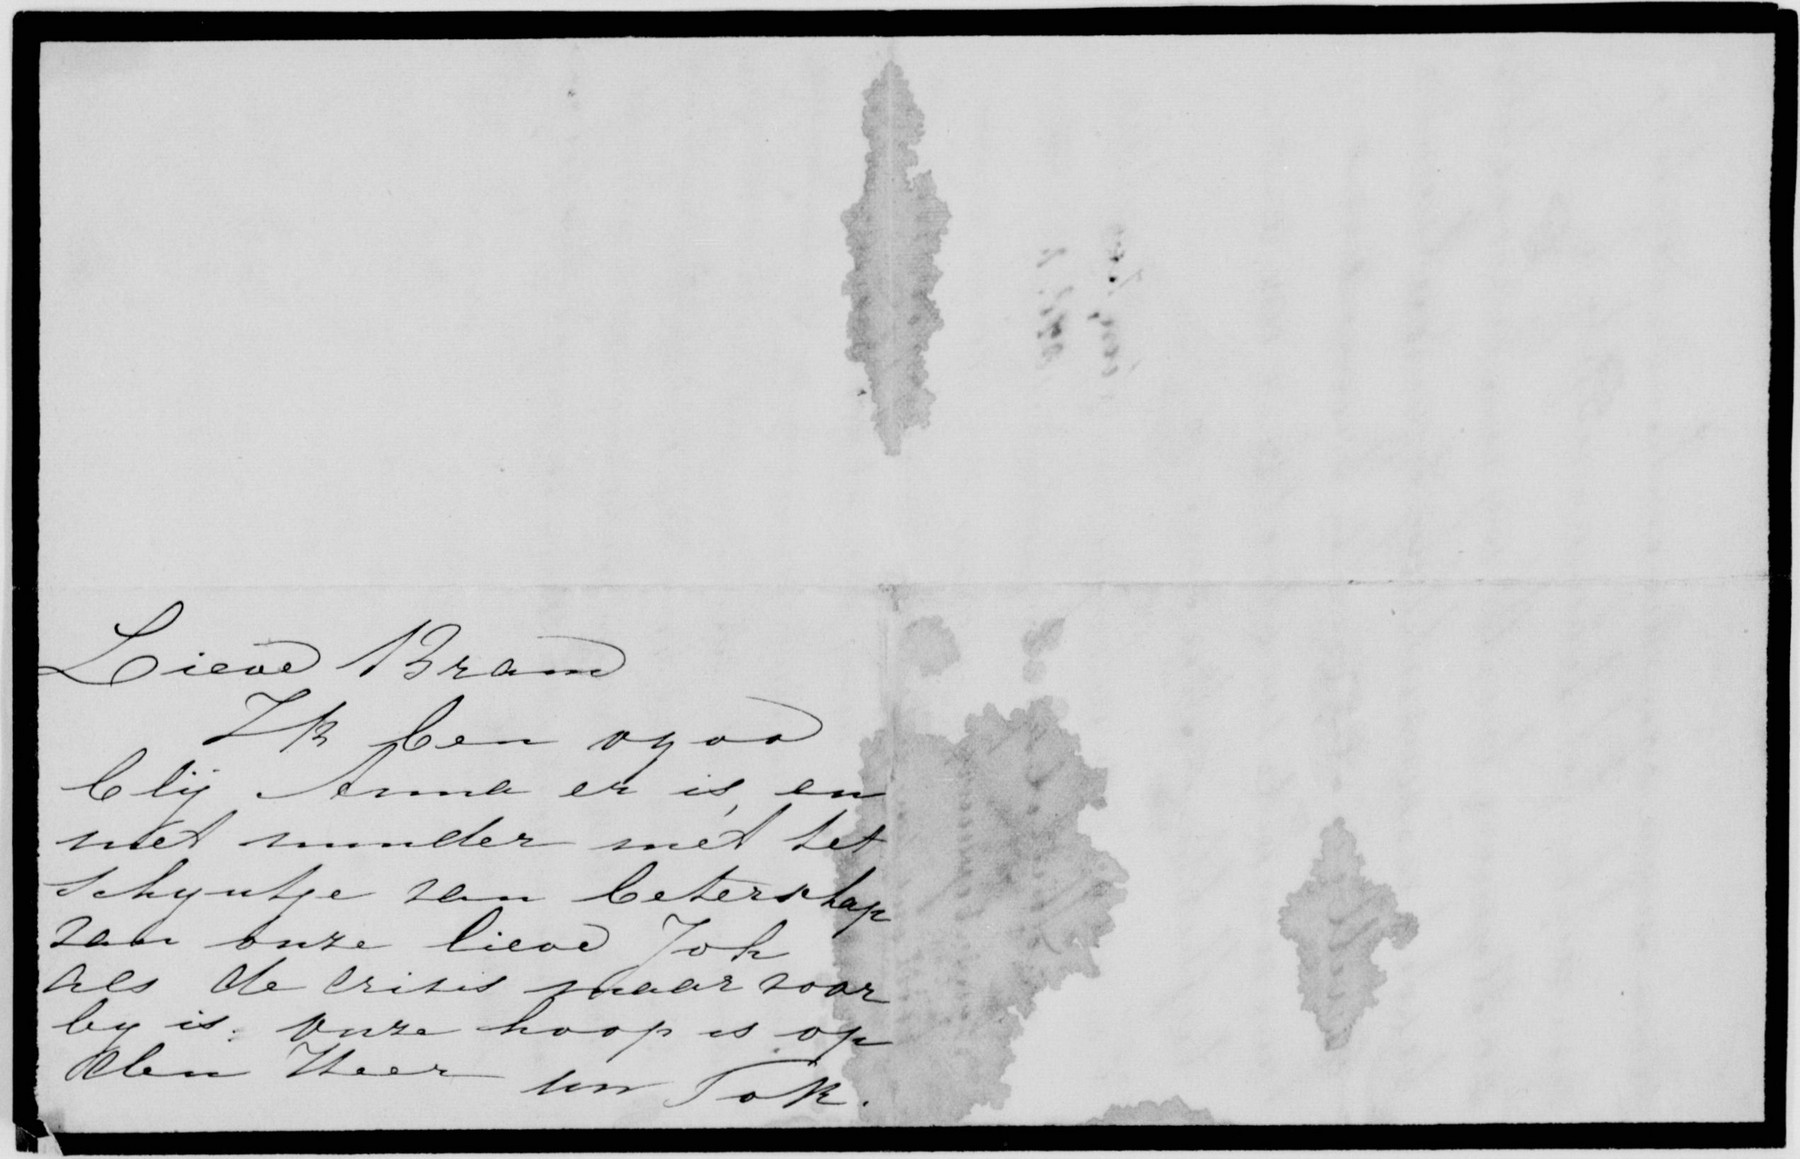 Lieve Bram
Ik ben zoo
blij Anna er is, en
niet minder met het
schyntje van beterschap
van onze lieve Joh
als de crisis maar voor
by is. onze hoop is op
den Heer